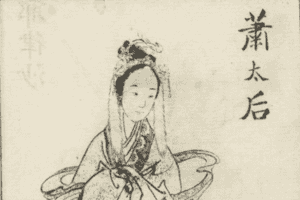 蕭太后